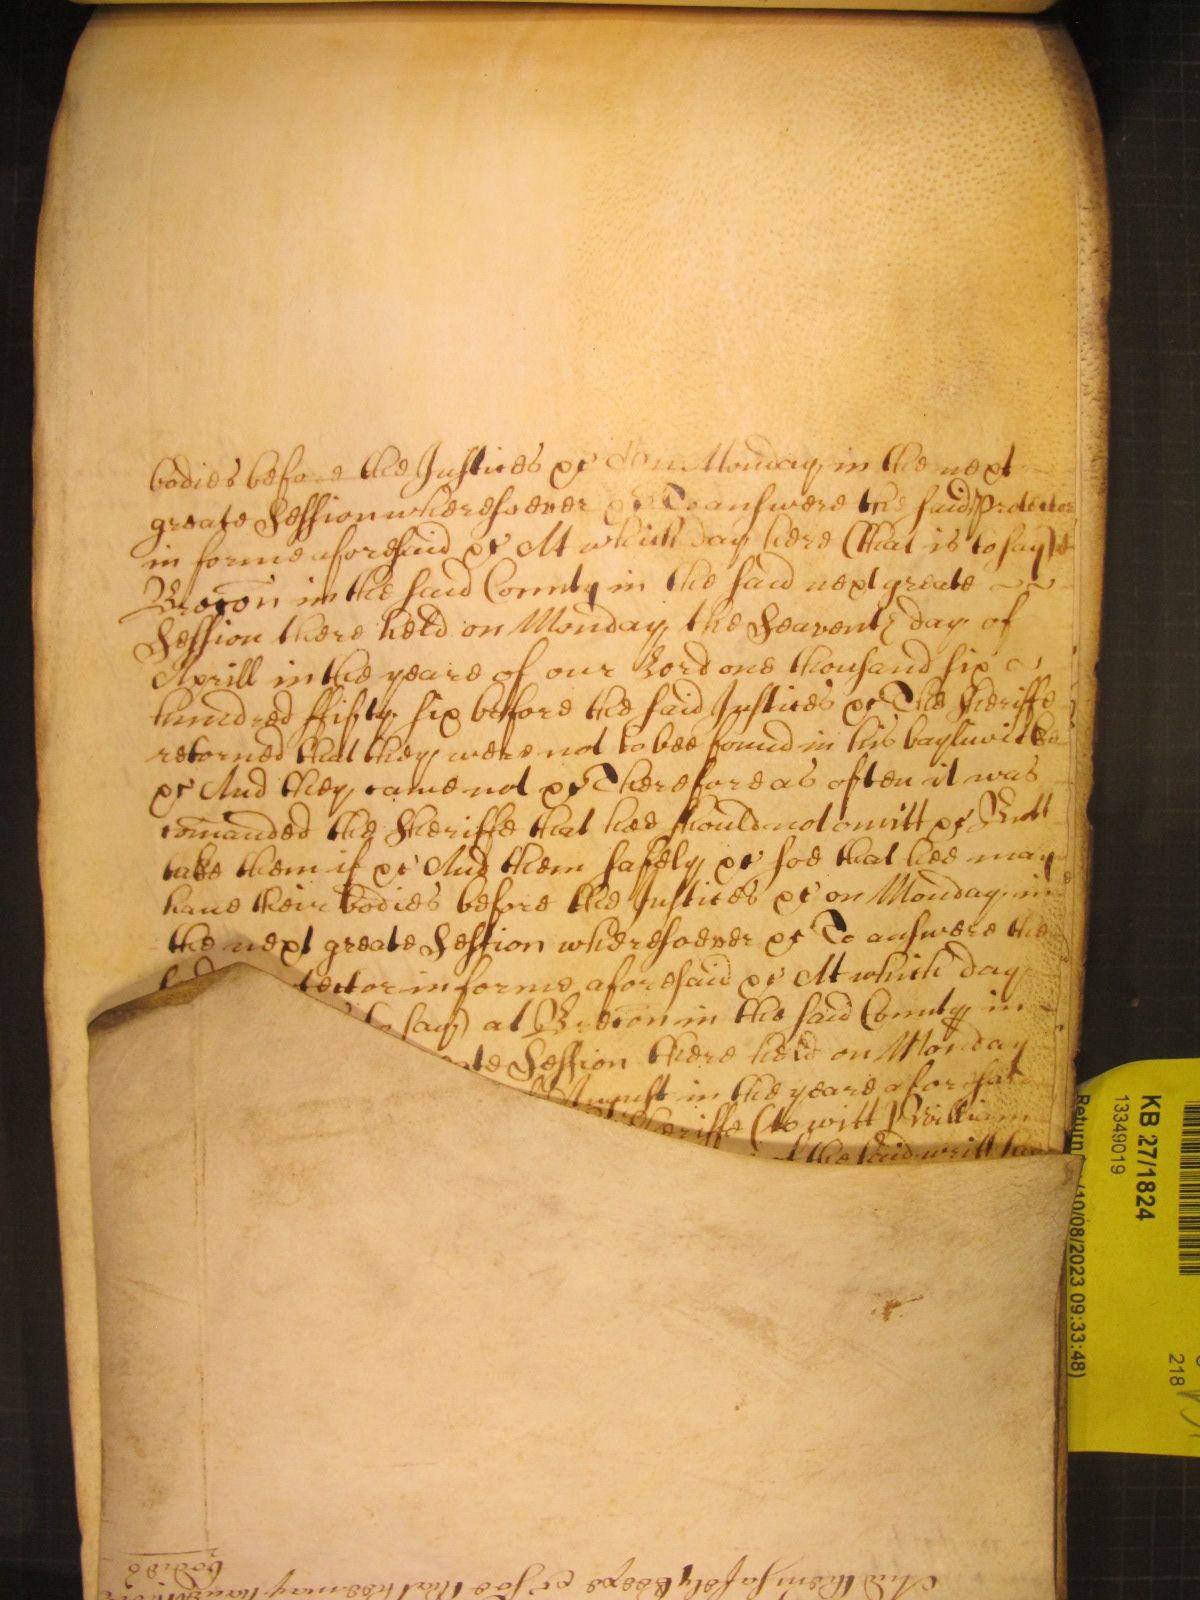 bodies before the Justices &c on Monday in the next
greate Session wheresoever &c To answere the said Protector
in forme aforesaid &c At which day here (that is to say) at
Brecon in the said County in the said next greate
Session there held on Monday the Seaventh day of
Aprill in the yeare of our Lord one thousand six
hundred ffifty six before the said Justices &c The Sheriffe
retorned that they were not to bee found in his bayliwicke
&c And they came not &c Therefore as often it was
comanded the Sheriffe that hee should not omitt &c Butt
take them if &c And them safely &c soe that hee may
haue their bodies before the Justices &c on Monday in
the next greate Session wheresoever &c To answere the
tector in forme aforesaid &c At which day
to say) at Brecon in the said County in
ate Session there held on Monday
August in the yeare aforesaid
Sheriffe (to witt) William
of the said writt
And them safely keepe &c soe that hee may haue their
bodies
KB 27/1824
13349019
Return (10/08/2023 09:33:48)
218